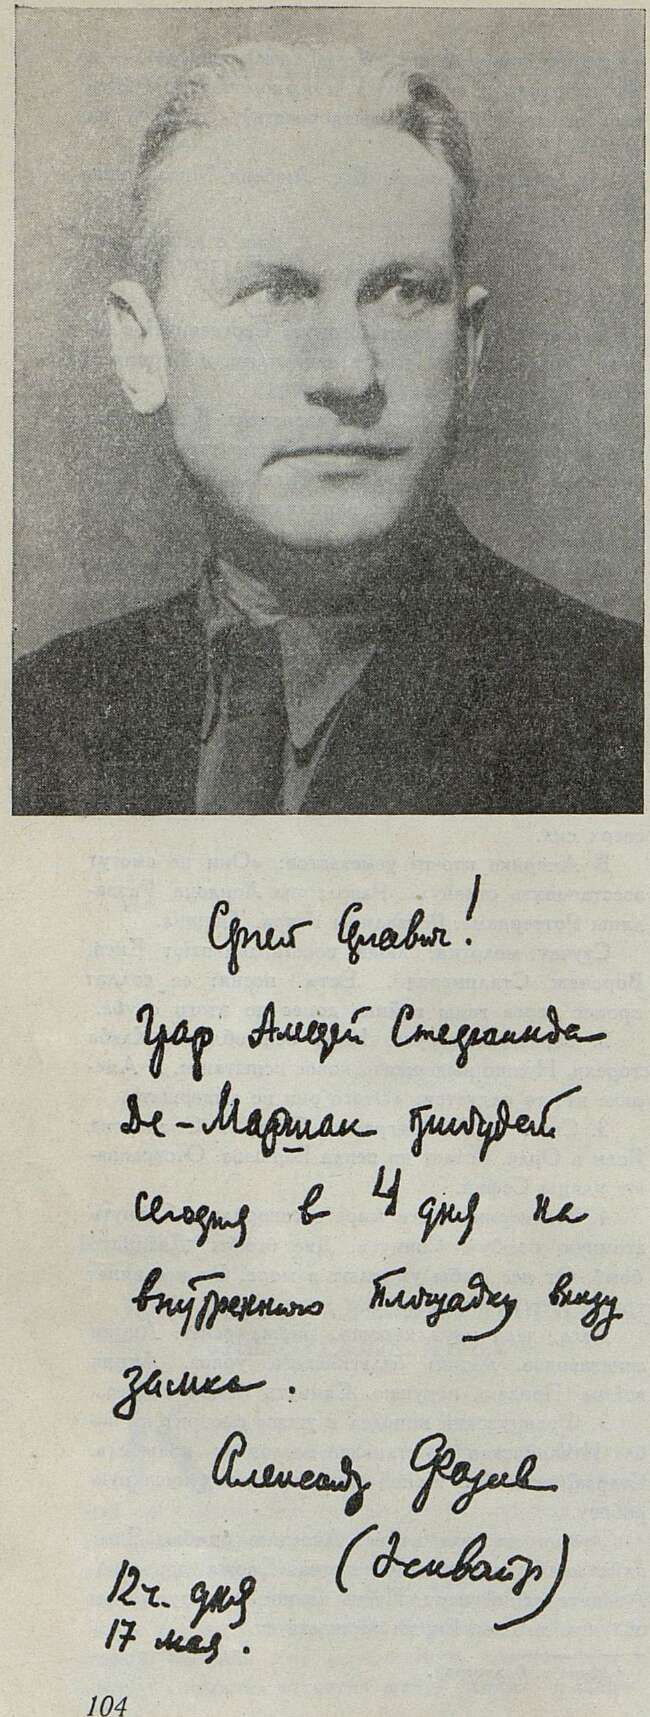 Граф Амедей Стефанида
Де-Маршак прибудет
сегодня в 4 дня на
внутреннюю площадку внизу
замка.
Александр Фадеев
(Эсквайр)
12 ч. дня
17 мая.
104